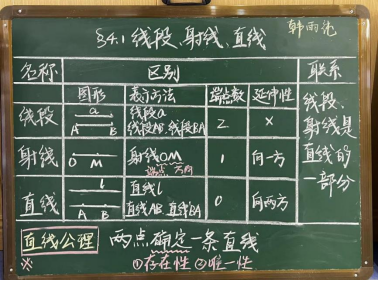 §4.1 线段、射线、直线
韩雨
名称 区别 联系
图形 表示方法 端点数 延伸性
线段 a A B 线段a 线段AB、线段BA 2 ×
射线 O M 射线OM 端点 方向 1 向一方
直线 l A B 直线l 直线AB、直线BA 0 向两方
线段、
射线是
直线的
一部分
直线公理 两点确定一条直线
※ ①存在性 ②唯一性